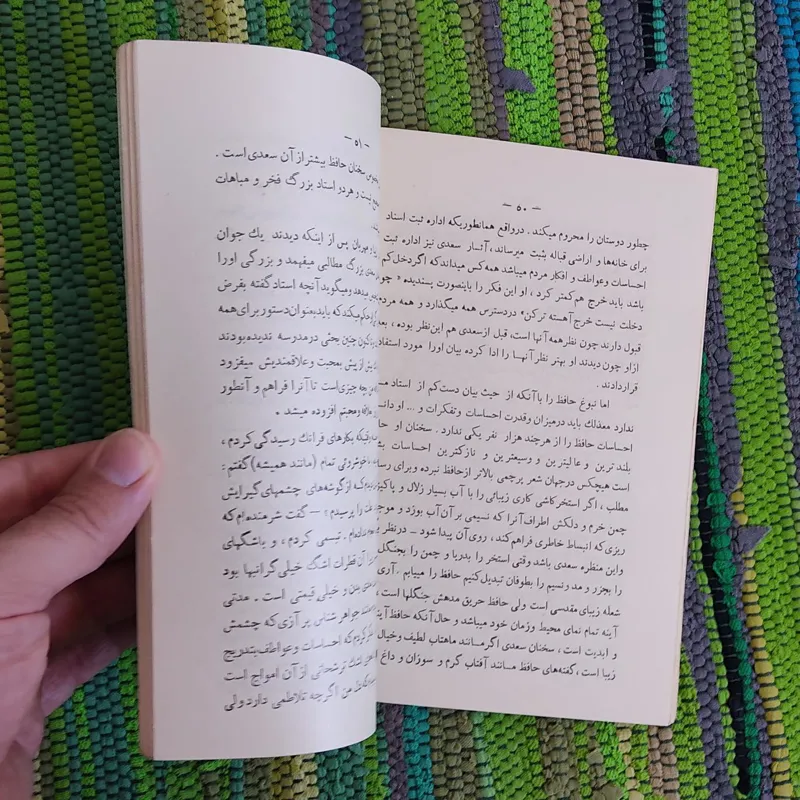 — ۵۰ —
چطور دوستان را محروم میکند . درواقع همانطوریکه اداره ثبت اسناد
برای خانه‌ها و اراضی قباله بثبت میرساند، آثار سعدی نیز اداره ثبت
احساسات وعواطف و افکار مردم میباشد همه‌کس میداند که اگر دخل کم
باشد باید خرج هم کمتر کرد ، او این فکر را باینصورت پسندیده « چو
دخلت نیست خرج آهسته ترکن» دردسترس همه میگذارد و همه مردم
قبول دارند چون نظرهمه آنها است، قبل ازسعدی هم این نظر بوده ،
ازاو چون دیدند او بهتر نظر آنها را ادا کرده بیان اورا مورد
قراردادند .
اما نبوغ حافظ را با آنکه از حیث بیان دست کم از استاد
ندارد معذلك باید درمیزان وقدرت احساسات وتفکرات و ... او
احساسات حافظ را از هرچند هزار نفر یکی ندارد . سخنان او
بلند ترین و عالیترین و وسیعترین و نازکترین احساسات
است هیچکس درجهان شعر پرچمی بالاتر ازحافظ نبرده وبرای
مطلب ، اگر استخر کاشی کاری زیبائی را با آب بسیار زلال و
چمن خرم و دلکش اطراف آنرا که نسیمی بر آن آب بوزد و
ریزی که انبساط خاطری فراهم کند، روی آن پیدا شود ـ درنظر
واین منظره سعدی باشد وقتی استخر را بدریا و چمن را بجنگل
را بجزر و مد ونسیم را بطوفان تبدیل کنیم حافظ را مییابم . آری
شعله زیبای مقدسی است ولی حافظ حریق مدهش جنگلها است ،
آینه تمام نمای محیط وزمان خود میباشد و حال آنکه حافظ
و ابدیت است ، سخنان سعدی اگر مانند ماهتاب لطیف وخیال
زیبا است ، گفته‌های حافظ مانند آفتاب گرم و سوزان و داغ
— ۵۱ —
سخنان حافظ بیشتر از آن سعدی است .
و هردو استاد بزرگ فخر و مباهات
پس از اینکه دیدند یك جوان
بزرگ مطالبی میفهمد و بزرگی اورا
ومیگوید آنچه استاد گفته بفرض
که باید بعنوان دستور برای همه
چنین بحثی درمدرسه ندیده بودند
از پیش بمحبت وعلاقمندیش میفزود
چیزی است تا آنرا فراهم و آنطور
ومحبتم افزوده میشد .
رسیدگی کردم ،
تمام (مانند همیشه) گفتم :
که از گوشه‌های چشمهای گیرایش
را پرسیدم » — گفت شرمنده‌ام که
تبسمی کردم ، و باشگهای
آن قطرات اشگ خیلی گرانبها بود
و خیلی قیمتی است . مدتی
جواهر شناس پر آزی که چشمش
که احساسات وعواطف بتدریج
اشك ترشحاتی از آن امواج است
من اگرچه تلاطمی دارد ولی